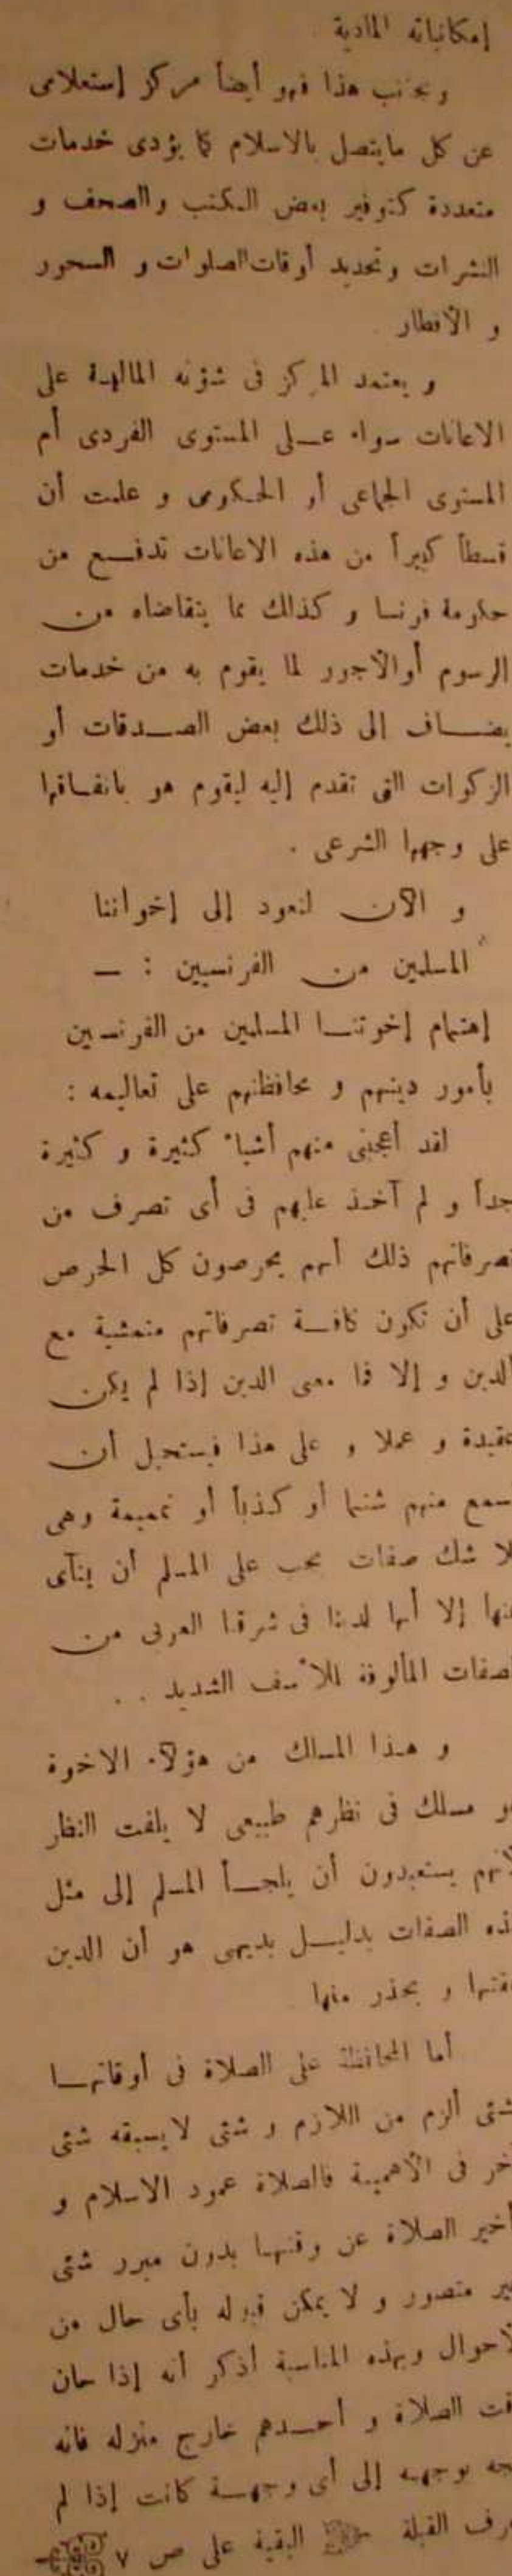 إمكانياته المادية
وبجانب هذا فهو أيضاً مركز إستعلامى
عن كل مايتصل بالاسلام كما يؤدى خدمات
متعددة كتوفير بعض الكتب والصحف و
النشرات وتحديد أوقات الصلوات و السحور
و الأفطار
و يعتمد المركز فى شؤنه المالية على
الاعانات سواء على المستوى الفردى أم
المستوى الجماعى أو الحكومى و علمت أن
قسطاً كبيراً من هذه الاعانات تدفع من
حكومة فرنسا و كذالك مما يتقاضاه من
الرسوم أوالأجور لما يقوم به من خدمات
يضاف إلى ذلك بعض الصدقات أو
الزكوات التى تقدم إليه ليقوم هو بانفاقها
على وجهها الشرعى .
و الآن لنعود إلى إخواننا
المسلمين من الفرنسيين : —
إهتمام إخوتنا المسلمين من الفرنسيين
بأمور دينهم و محافظتهم على تعاليمه :
لقد أعجبنى منهم أشياء كثيرة و كثيرة
جداً و لم آخذ عليهم فى أى تصرف من
تصرفاتهم ذلك أنهم يحرصون كل الحرص
على أن تكون كافة تصرفاتهم متمشية مع
الدين و إلا فما معنى الدين إذا لم يكن
عقيدة و عملا و على هذا فيستحيل أن
سمع منهم شتما أو كذباً أو نميمة وهى
لا شك صفات يجب على المسلم أن ينآى
نها إلا أنها لدينا فى شرقنا العربى من
صفات المألوفة للأسف الشديد . .
و هذا المسالك من هؤلاء الاخوة
و مسلك فى نظرهم طبيعى لا يلفت النظار
لأنهم يستعبدون أن يلجأ المسلم إلى مثل
ذه الصفات بدليل بديهى هو أن الدين
مقتها و يحذر منها
أما المحافظة على الصلاة فى أوقاتها
شئى ألزم من اللازم و شئى لايسبقه شئى
خر فى الأهمية فالصلاة عمود الاسلام و
أخير الصلاة عن وقتها بدون مبرر شئى
ير متصور و لا يمكن قبوله بأى حال من
لأحوال وبهذه المناسبة أذكر أنه إذا حان
قت الصلاة و أحدهم خارج منزله فانه
جه بوجهه إلى أى وجهة كانت إذا لم
رف القبلة البقية على ص ٧